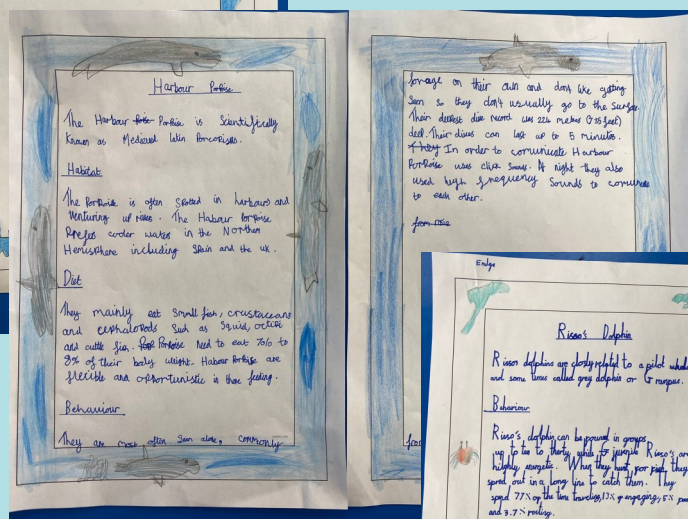 Harbour Porpoise
The Harbour Porpoise is Scientifically
Known as Medieval latin Porcopiscus.
Habitat
The Porpoise is often Spotted in harbours and
Venturing up rivers. The Habour Porpoise
Prefers cooler waters in the Northern
Hemisphere including Spain and the uk.
Diet
They mainly eat small fish, crustaceans
and cephalopods such as Squid, octopi
and cuttle fish. Porpoise need to eat 7% to
8% of their body weight. Habour Porpoise are
flexible and opportunistic in their feeding.
Behaviour
They are most often seen alone, commonly
forage on their own and dont like getting
seen so they don't usually go to the surface.
Their deepest dive record was 226 metres
deep. Their dives can last up to 5 minutes.
They In order to comunicate Harbour
Porpoise uses click sounds. At night they also
used high frequency sounds to
to each other.
Risso's Dolphin
Rissos dolphins are closly related to a pilot whale
and some times called grey dolphin or Grampus.
Behaviour
Risso's dolphin can be found in groups
up to ten to thirty while juvenile Risso's are
highly energetic. When they hunt for they
spred out in a long line to catch them. They
spend 77% of the time traveling, 13% engaging, 5%
and 3.7% resting.